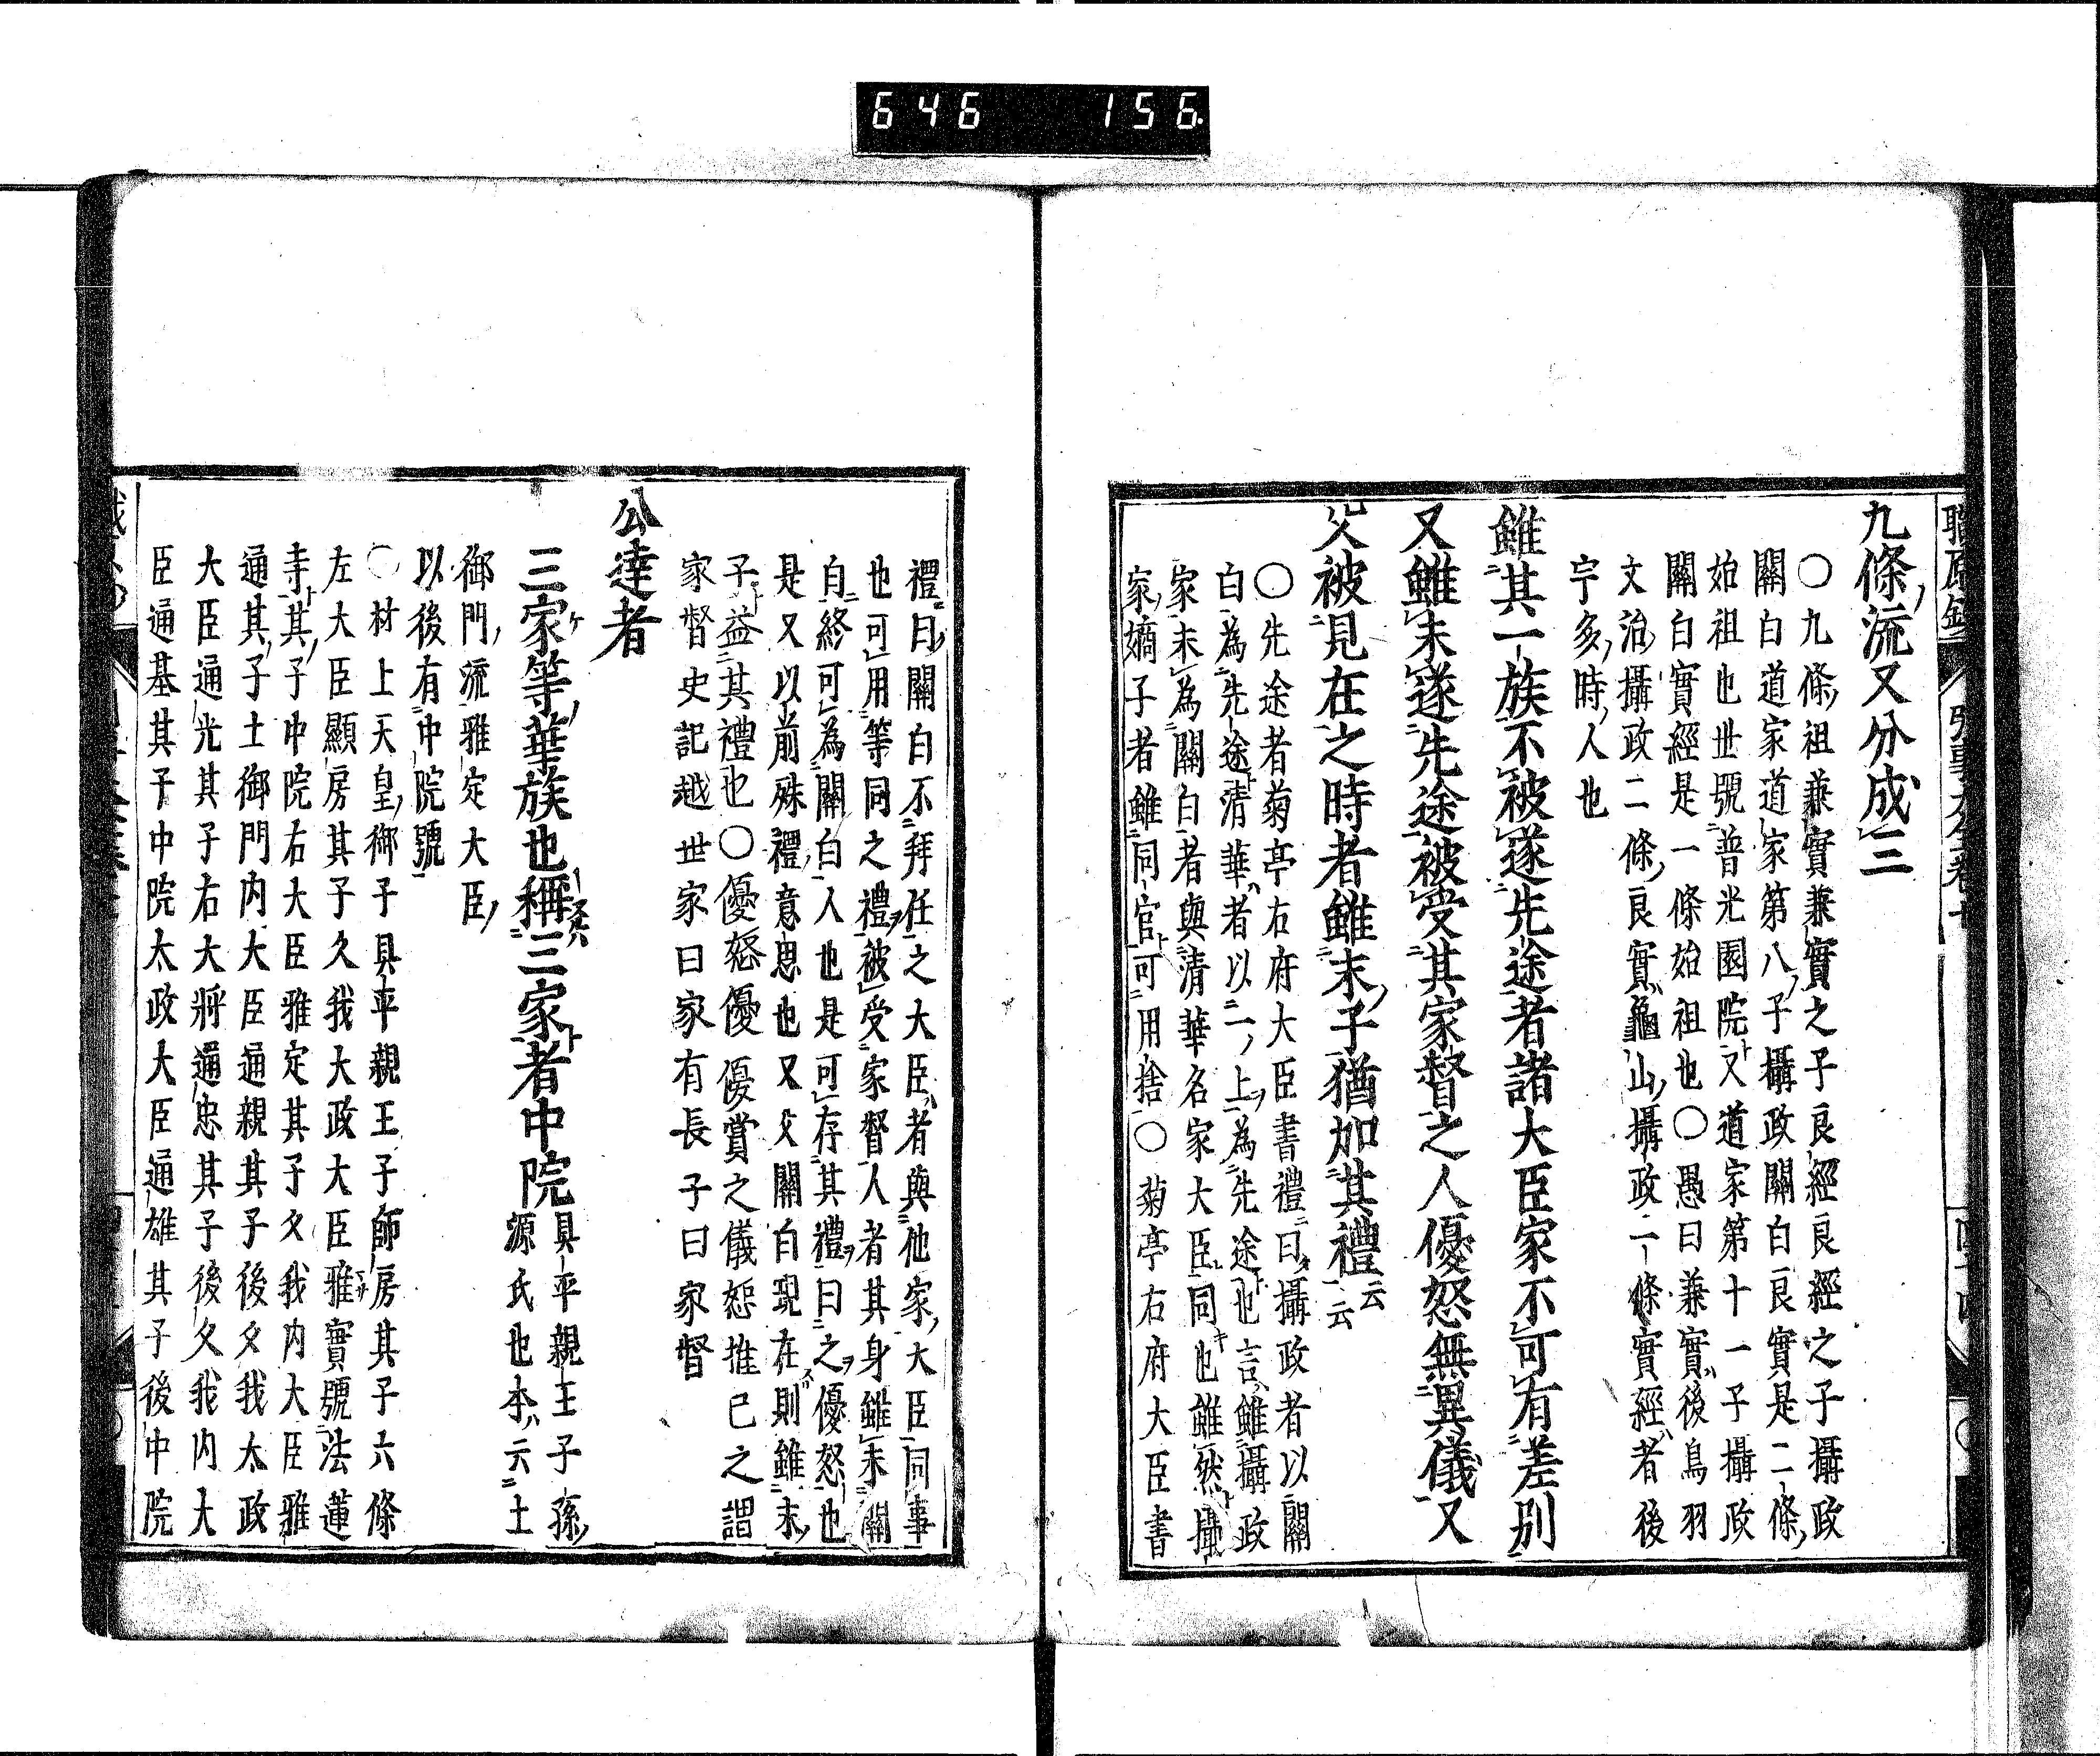 646 156
九條流又分成三
○九條祖兼實兼實之子良經良經之子攝政
關白道家道家第八子攝政關白良實是二條
始祖也世號普光園院又道家第十一子攝政
關白實經是一條始祖也○愚曰兼實後鳥羽
文治攝政二條良實龜山攝政二條實經者後
宇多時人也
雖其一族不被遂先途者諸大臣家不可有差別
又雖末遂先途被受其家督之人優恕無異儀又
父被見在之時者雖末子猶加其禮云云
○先途者菊亭右府大臣書禮曰攝政者以關
白為先途清華者以一上為先途也言雖攝政
家末為關白者與清華名家大臣同也雖然攝
家嫡子者雖同官可用捨○菊亭右府大臣書
禮曰關白不拜任之大臣者與他家大臣同事
也可用等同之禮被受家督人者其身雖未關
白終可為關白人也是可存其禮曰之優恕也
是又以前殊禮意思也又父關白現在則雖末
子益其禮也○優恕優優賞之儀恕推己之謂
家督史記越世家曰家有長子曰家督
公達者
三家等華族也稱三家者中院具平親王子孫
源氏也本云土
御門流雅定大臣
以後有中院號
○村上天皇御子具平親王子師房其子六條
左大臣顯房其子久我太政大臣雅實號法蓮
寺其子中院右大臣雅定其子久我内大臣雅
通其子土御門内大臣通親其子後久我太政
大臣通光其子右大將通忠其子後久我内大
臣通基其子中院太政大臣通雄其子後中院